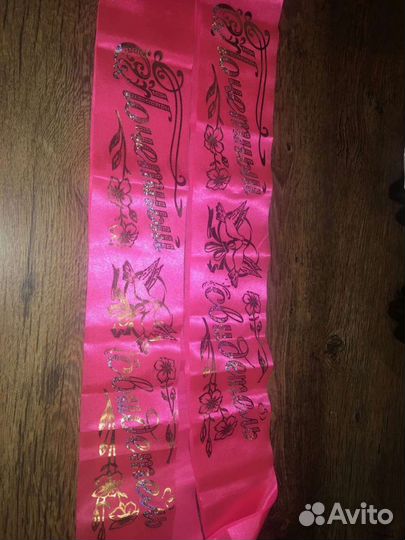 Почетный свидетель
Почетный свидетель
Avito